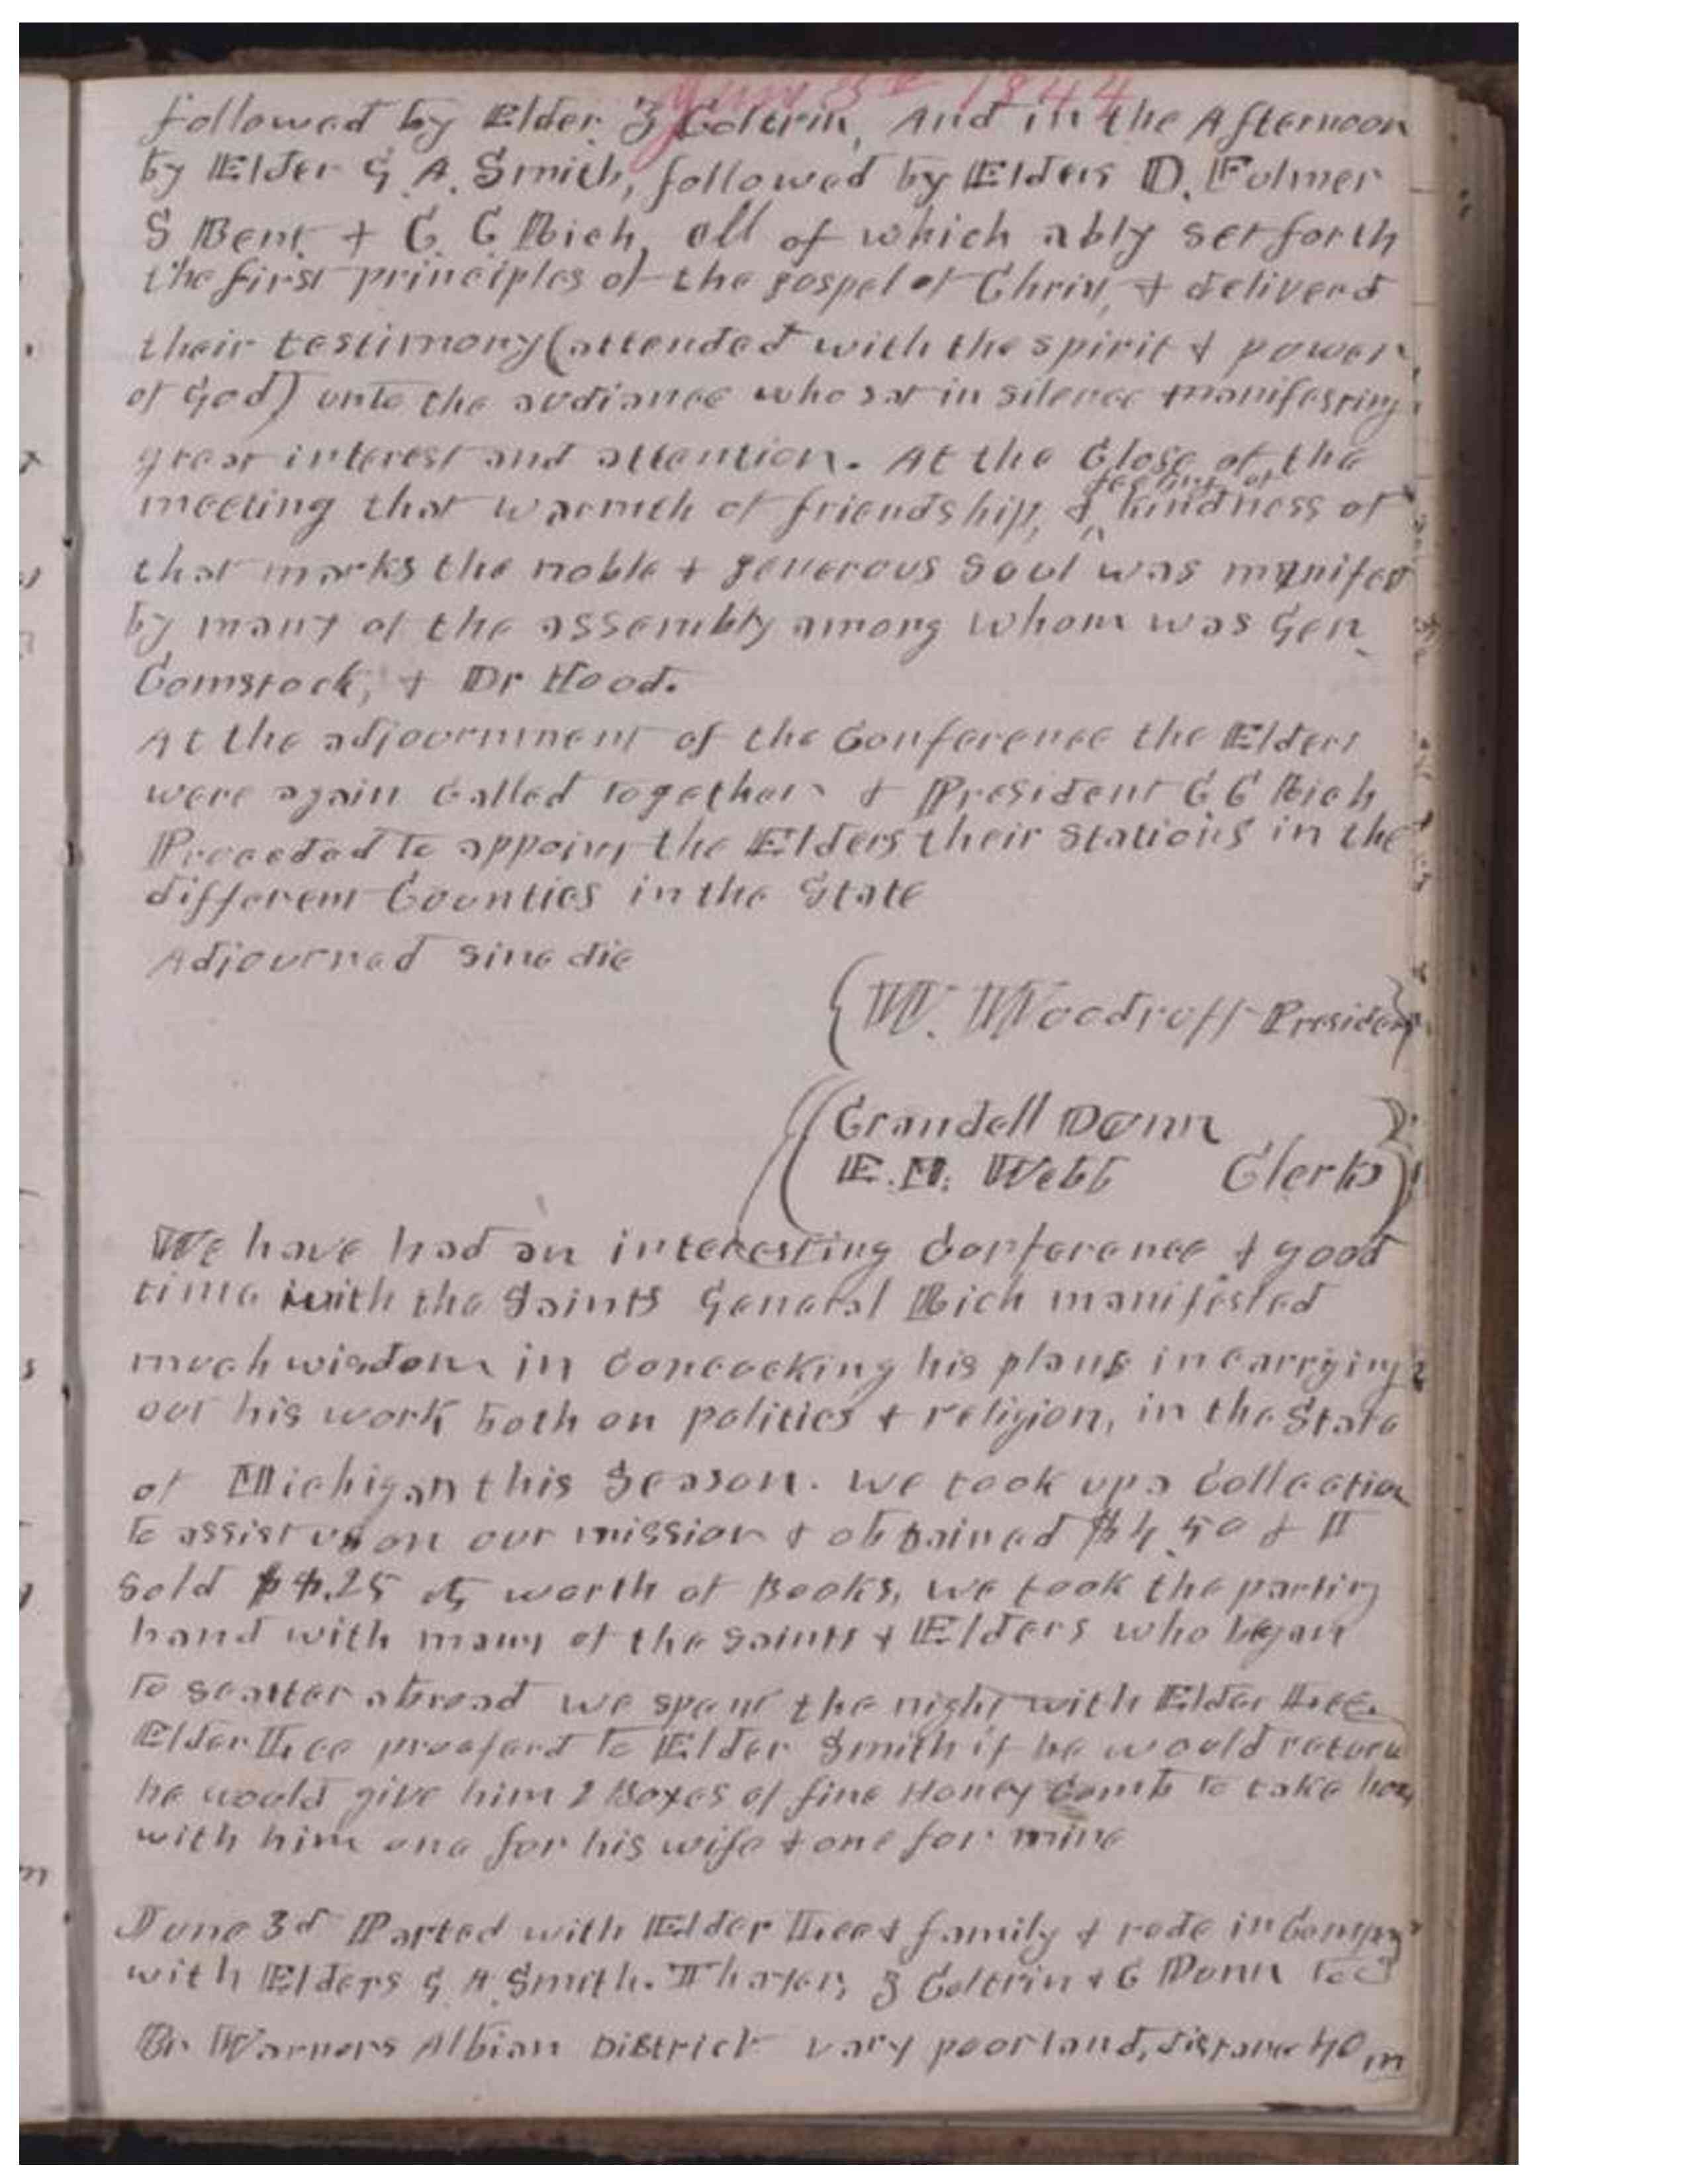 June 3d 1844
followed by Elder Z Coltrin, And in the Afternoon
by Elder G. A. Smith, followed by Elders D. Fulmer
S Bent + C. C Rich, all of which ably set forth
the first principles of the gospel of Christ, & deliverd
their testimony (attended with the spirit & power
of God) unto the audiance who sat in silence + manifesting
great interest and attention. At the Close of the
meeting that warmth of friendship, & feeling of kindness of
that marks the noble + generous soul was manifest
by many of the assembly among whom was Gen.
Comstock, + Dr Hood.
At the adjournment of the Conference the Elders
were again Called together & President C C Rich
Proceded to appoint the Elders their Stations in the
different Counties in the State
Adjourned sine die
W. Woodruff President
Crandell Dunn
E. M. Webb Clerks
We have had an interesting Conference & good
time with the Saints General Rich manifested
much wisdom in Concocking his plans in carrying
out his work both on politics + religion, in the State
of Michigan this Season. we took up a Collection
to assist us on our mission + obtained $4.50 & I
sold $4.25 cts worth of Books, we took the parting
hand with many of the Saints & Elders who began
to scatter abroad we spent the night with Elder Lee.
Elder Lee prooferd to Elder Smith if he would return
he would give him 2 Boxes of fine Honey Comb to take home
with him one for his wife & one for mine
June 3d Parted with Elder Lee & family & rode in Company
with Elders G. A. Smith. Thayer, Z Coltrin & C Dunn to
Br Warners Albian District vary poor land, distance 40 m